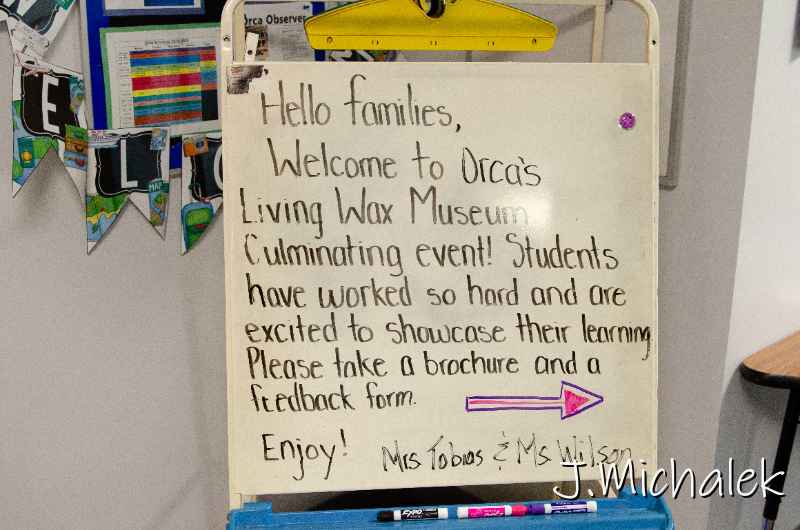 Orca Observer
E
L
MAP
Hello families,
Welcome to Orca's
Living Wax Museum
Culminating event! Students
have worked so hard and are
excited to showcase their learning
Please take a brochure and a
feedback form.
Enjoy!
Mrs Tobias & Ms Wilson
J.Michalek
EXPO